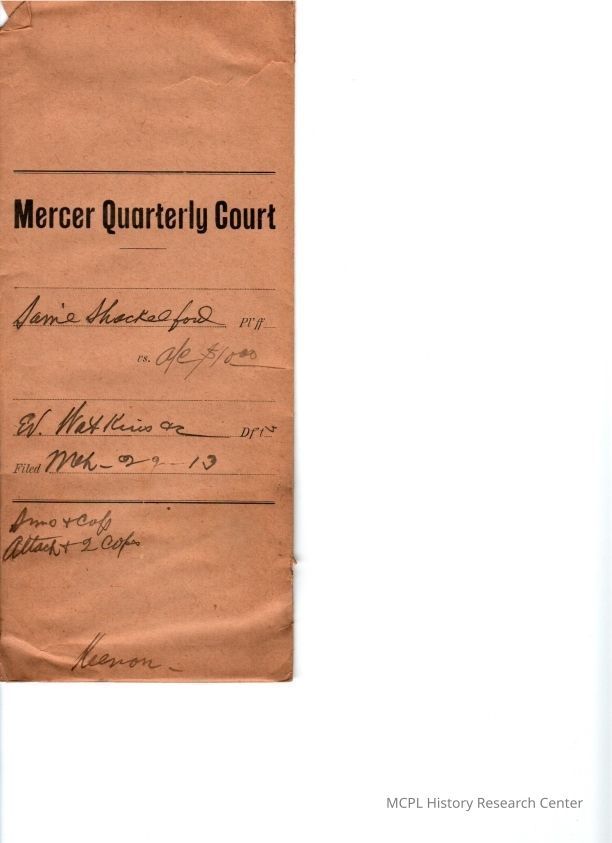 Mercer Quarterly Court
Shackelford Pl'ff
vs. a/c $10 00
Ed. Watkins &c Df't s
Filed Mch - 29 - 13
Sms & Copy
Attach & 2 Copies
Keenon -
MCPL History Research Center